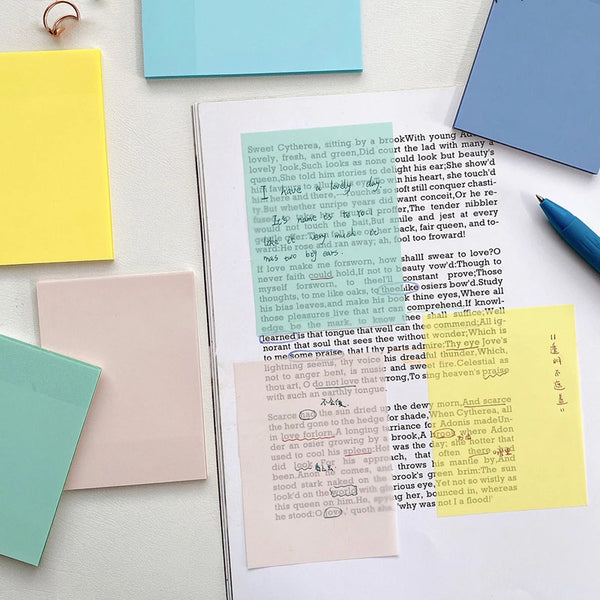 Sweet Cytherea, sitting by a brookWith young Ado
lovely, fresh, and green,Did court the lad with many a
lovely look,Such looks as none could look but beauty's
queen,She told him stories to delight his ear;She show'd
his heart, she touch'd
here and there,
soft still conquer chasti-
ty.But whether unripe years did want conceit,Or he re-
The tender nibbler
would not touch the bait,But smile and jest at every
back, fair queen, and to-
ward:He rose and ran away; ah, fool too froward!
I have a lovely day.
It's name is to ro. I
like it very much. It
has two big ears.
If love make me forsworn, how shall swear to love?O
never faith could hold,If not to beauty vow'd:Though to
myself forsworn, to thee I'll constant prove;Those
thoughts, to me like oaks, to thee like osiers bow'd.Study
his bias leaves,and make his book thine eyes,Where all
those pleasures live that art can comprehend.If knowl-
edge be the mark, to know thee shall suffice;Well
learned is that tongue that well can thee commend;All ig-
norant that soul that sees thee without wonder;Which is
to me some praise, that I thy parts admire:Thy eye Jove's
lightning seems, thy voice his dreadful thunder,Which,
not to anger bent, is music and sweet fire.Celestial as
thou art, O do not love that wrong,To sing heaven's praise
with such an earthly tongue.
Scarce had the sun dried up the dewy morn,And scarce
the herd gone to the hedge for shade,When Cytherea, all
in love forlorn,A longing tarriance for Adonis madeUn-
der an osier growing by a brook,A brook where Adon
used to cool his spleen:Hot was the day; she hotter that
did look For his approach, that often there had
been.Anon he comes, and throws his mantle by,And
stood stark naked on the brook's green brim:The sun
look'd on the world with glorious eye,Yet not so wistly as
this queen on him.He, spying her, bounced in, whereas
he stood:'O Jove,' quoth she, 'why was not I a flood!'